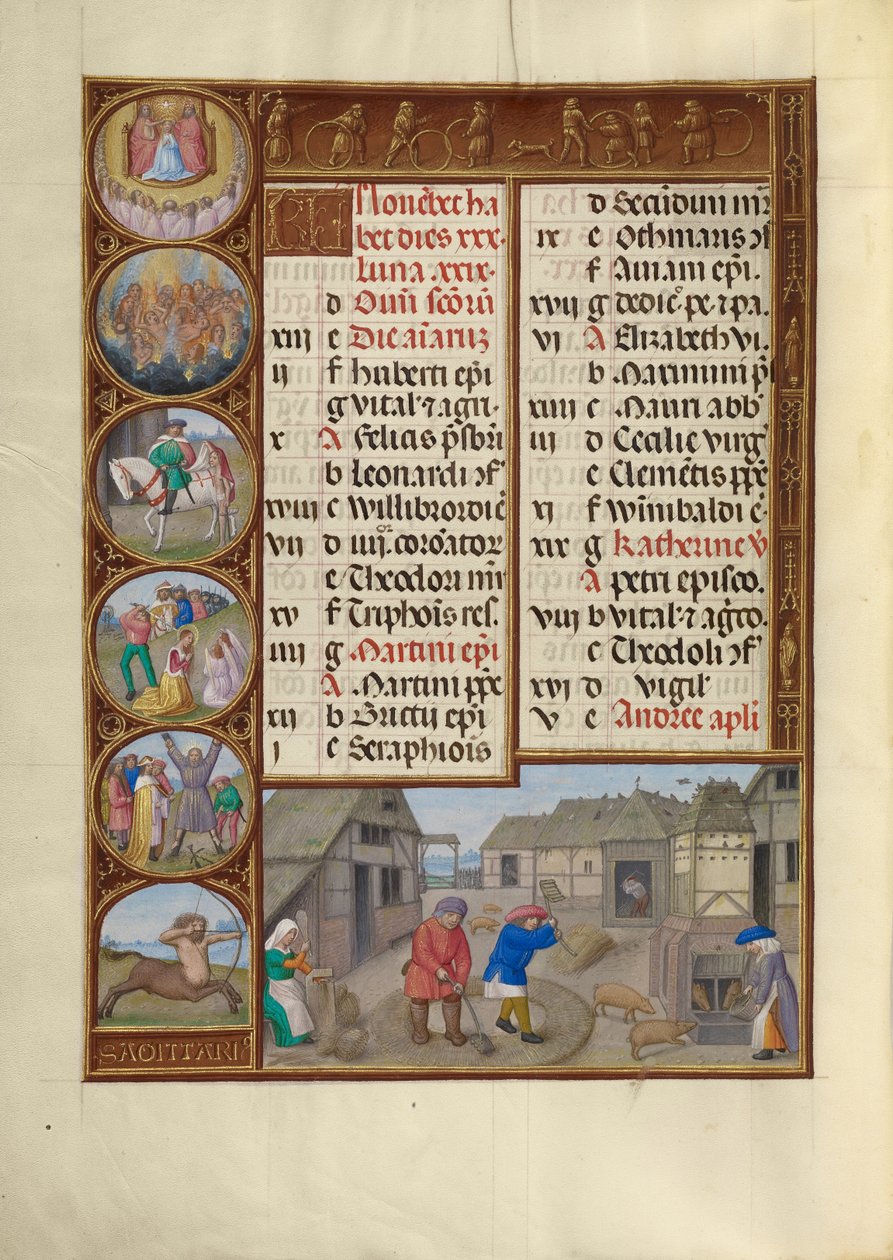 KL Novēbet ha
bet dies xxx.
Luna xxix.
d Oīm̄ scōrū
xiij e Die aīarū
ij f Huberti epī
g Vital' ⁊ agri.
x A Felicis p̄sbrī
b Leonardi ɔf'
xviij c Willibrordi ē
vij d iiij. coronator
e Theodori mr̄
xv f Triphoīs res.
iiij g Martini epī
A Martini pp̄e
xij b Brictij epī
i c Seraphiois
d Secūdini mr̄
ix e Othmaris ɔf
f Aniani epī.
xvij g dedic̄ pe. ⁊ pa.
vi A Elizabeth vi.
b Maximini p̄
xiiij c Mauri abb
iij d Cecilie virg
e Clemētis pp̄e
xi f Winibaldi c̄
xix g Katherine v̄
A petri episco.
viij b Vital' ⁊ agr̄co.
c Theodoli ɔf'
xvi d vigil'
v e Andree aplī
SAGITTARI9